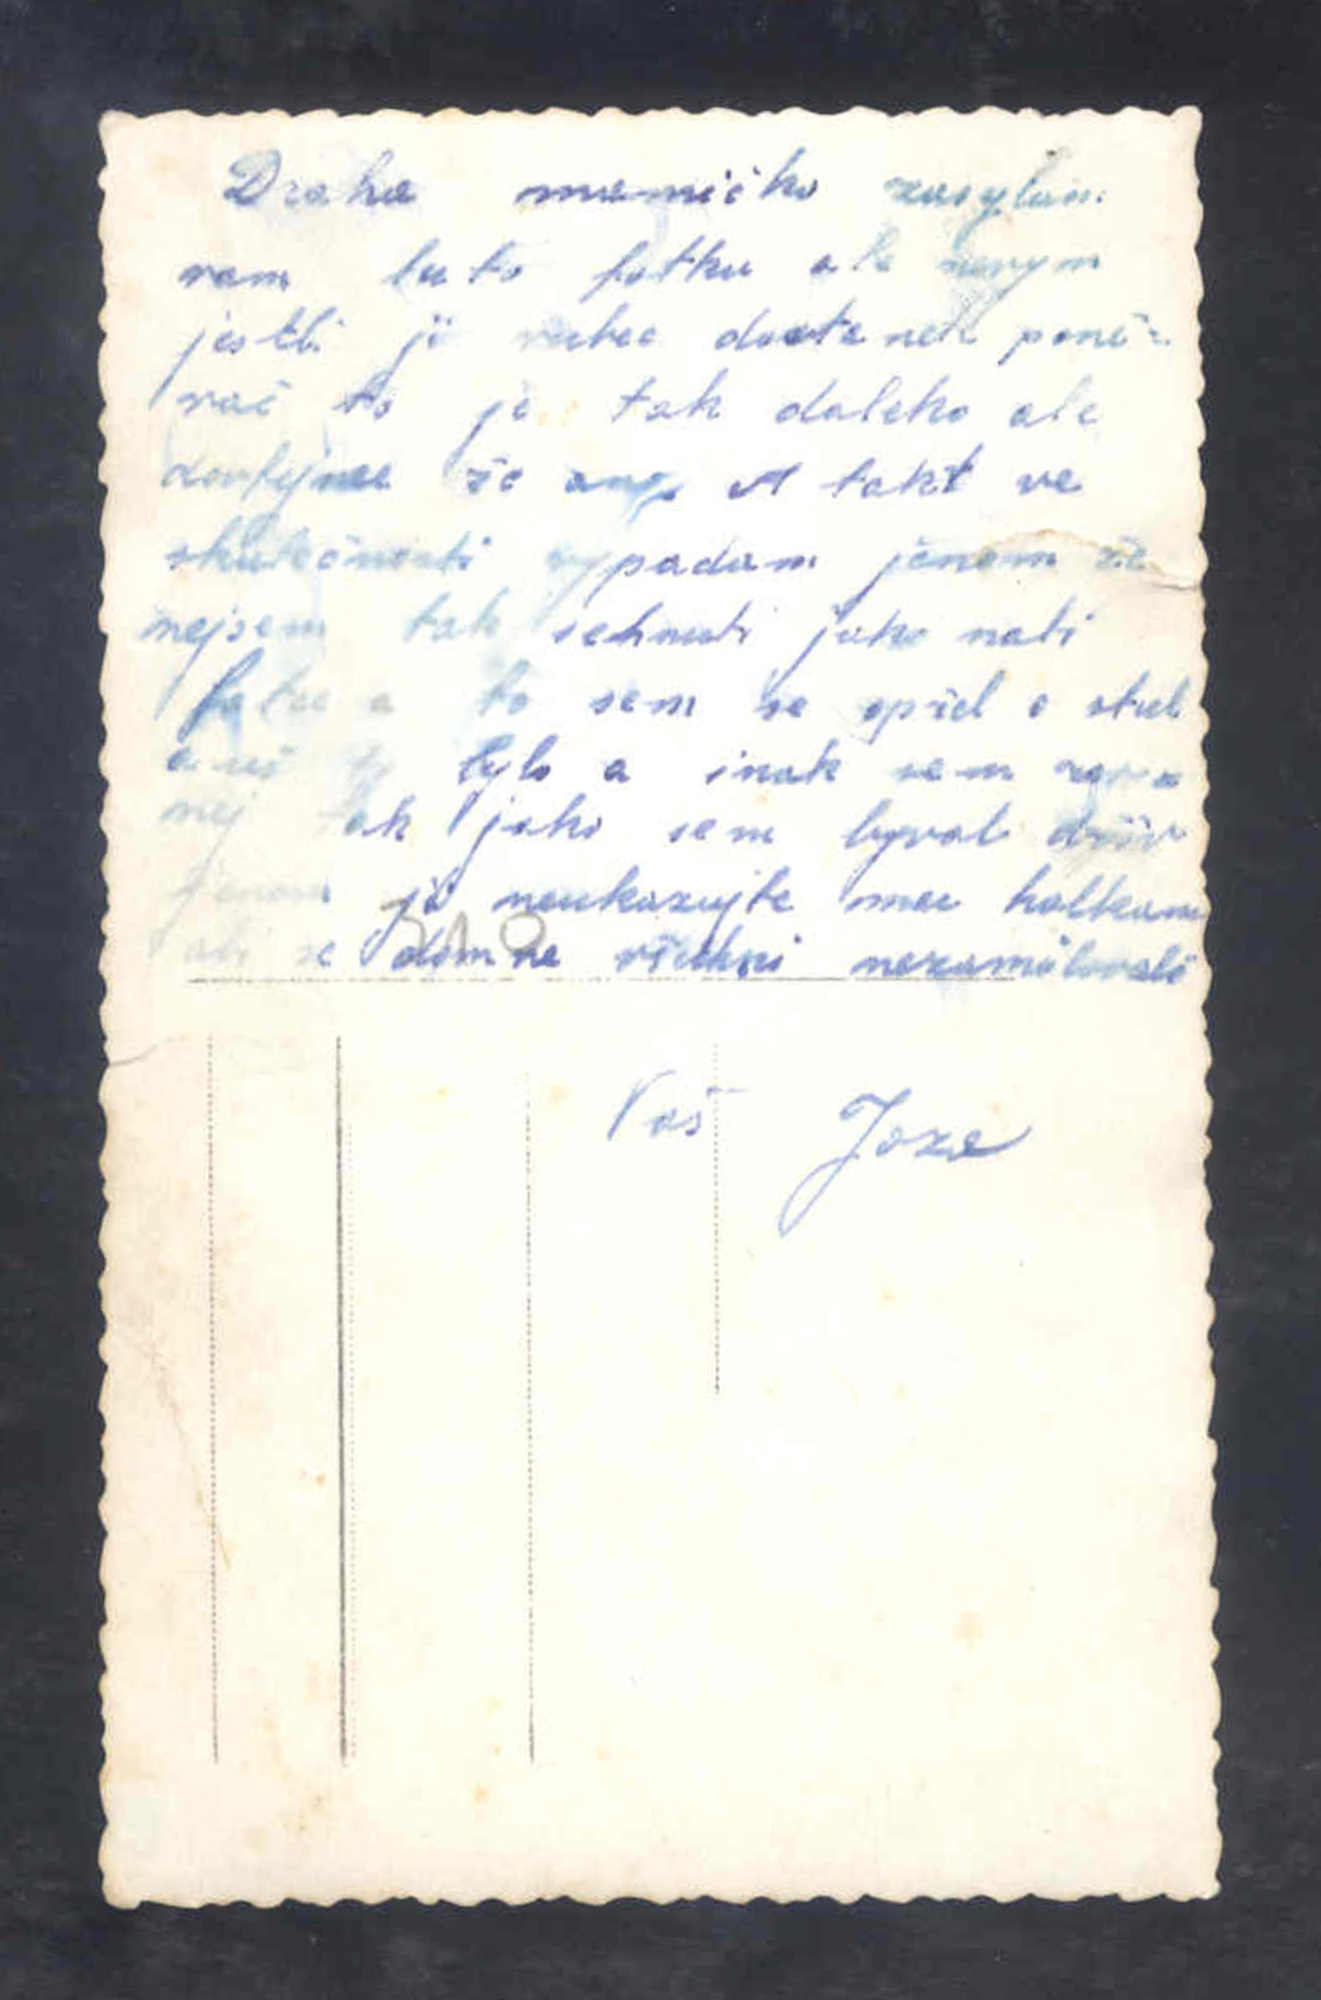 Draha mamičko zasylam
vam tuto fotku ale nevym
jestli ji vubec dostanete poně-
vač to je tak daleko ale
doufejme že ano. A takt ve
skutečnosti vypadam jenom že
nejsem tak sehnuti jako nati
fotce a to sem se opřel o stul
a uš to bylo a inak sem
nej tak jako sem byval dřiv
jenom ji neukazujte moc holkam
abi se domne všichni nezamilovali
210
Vaš Joza